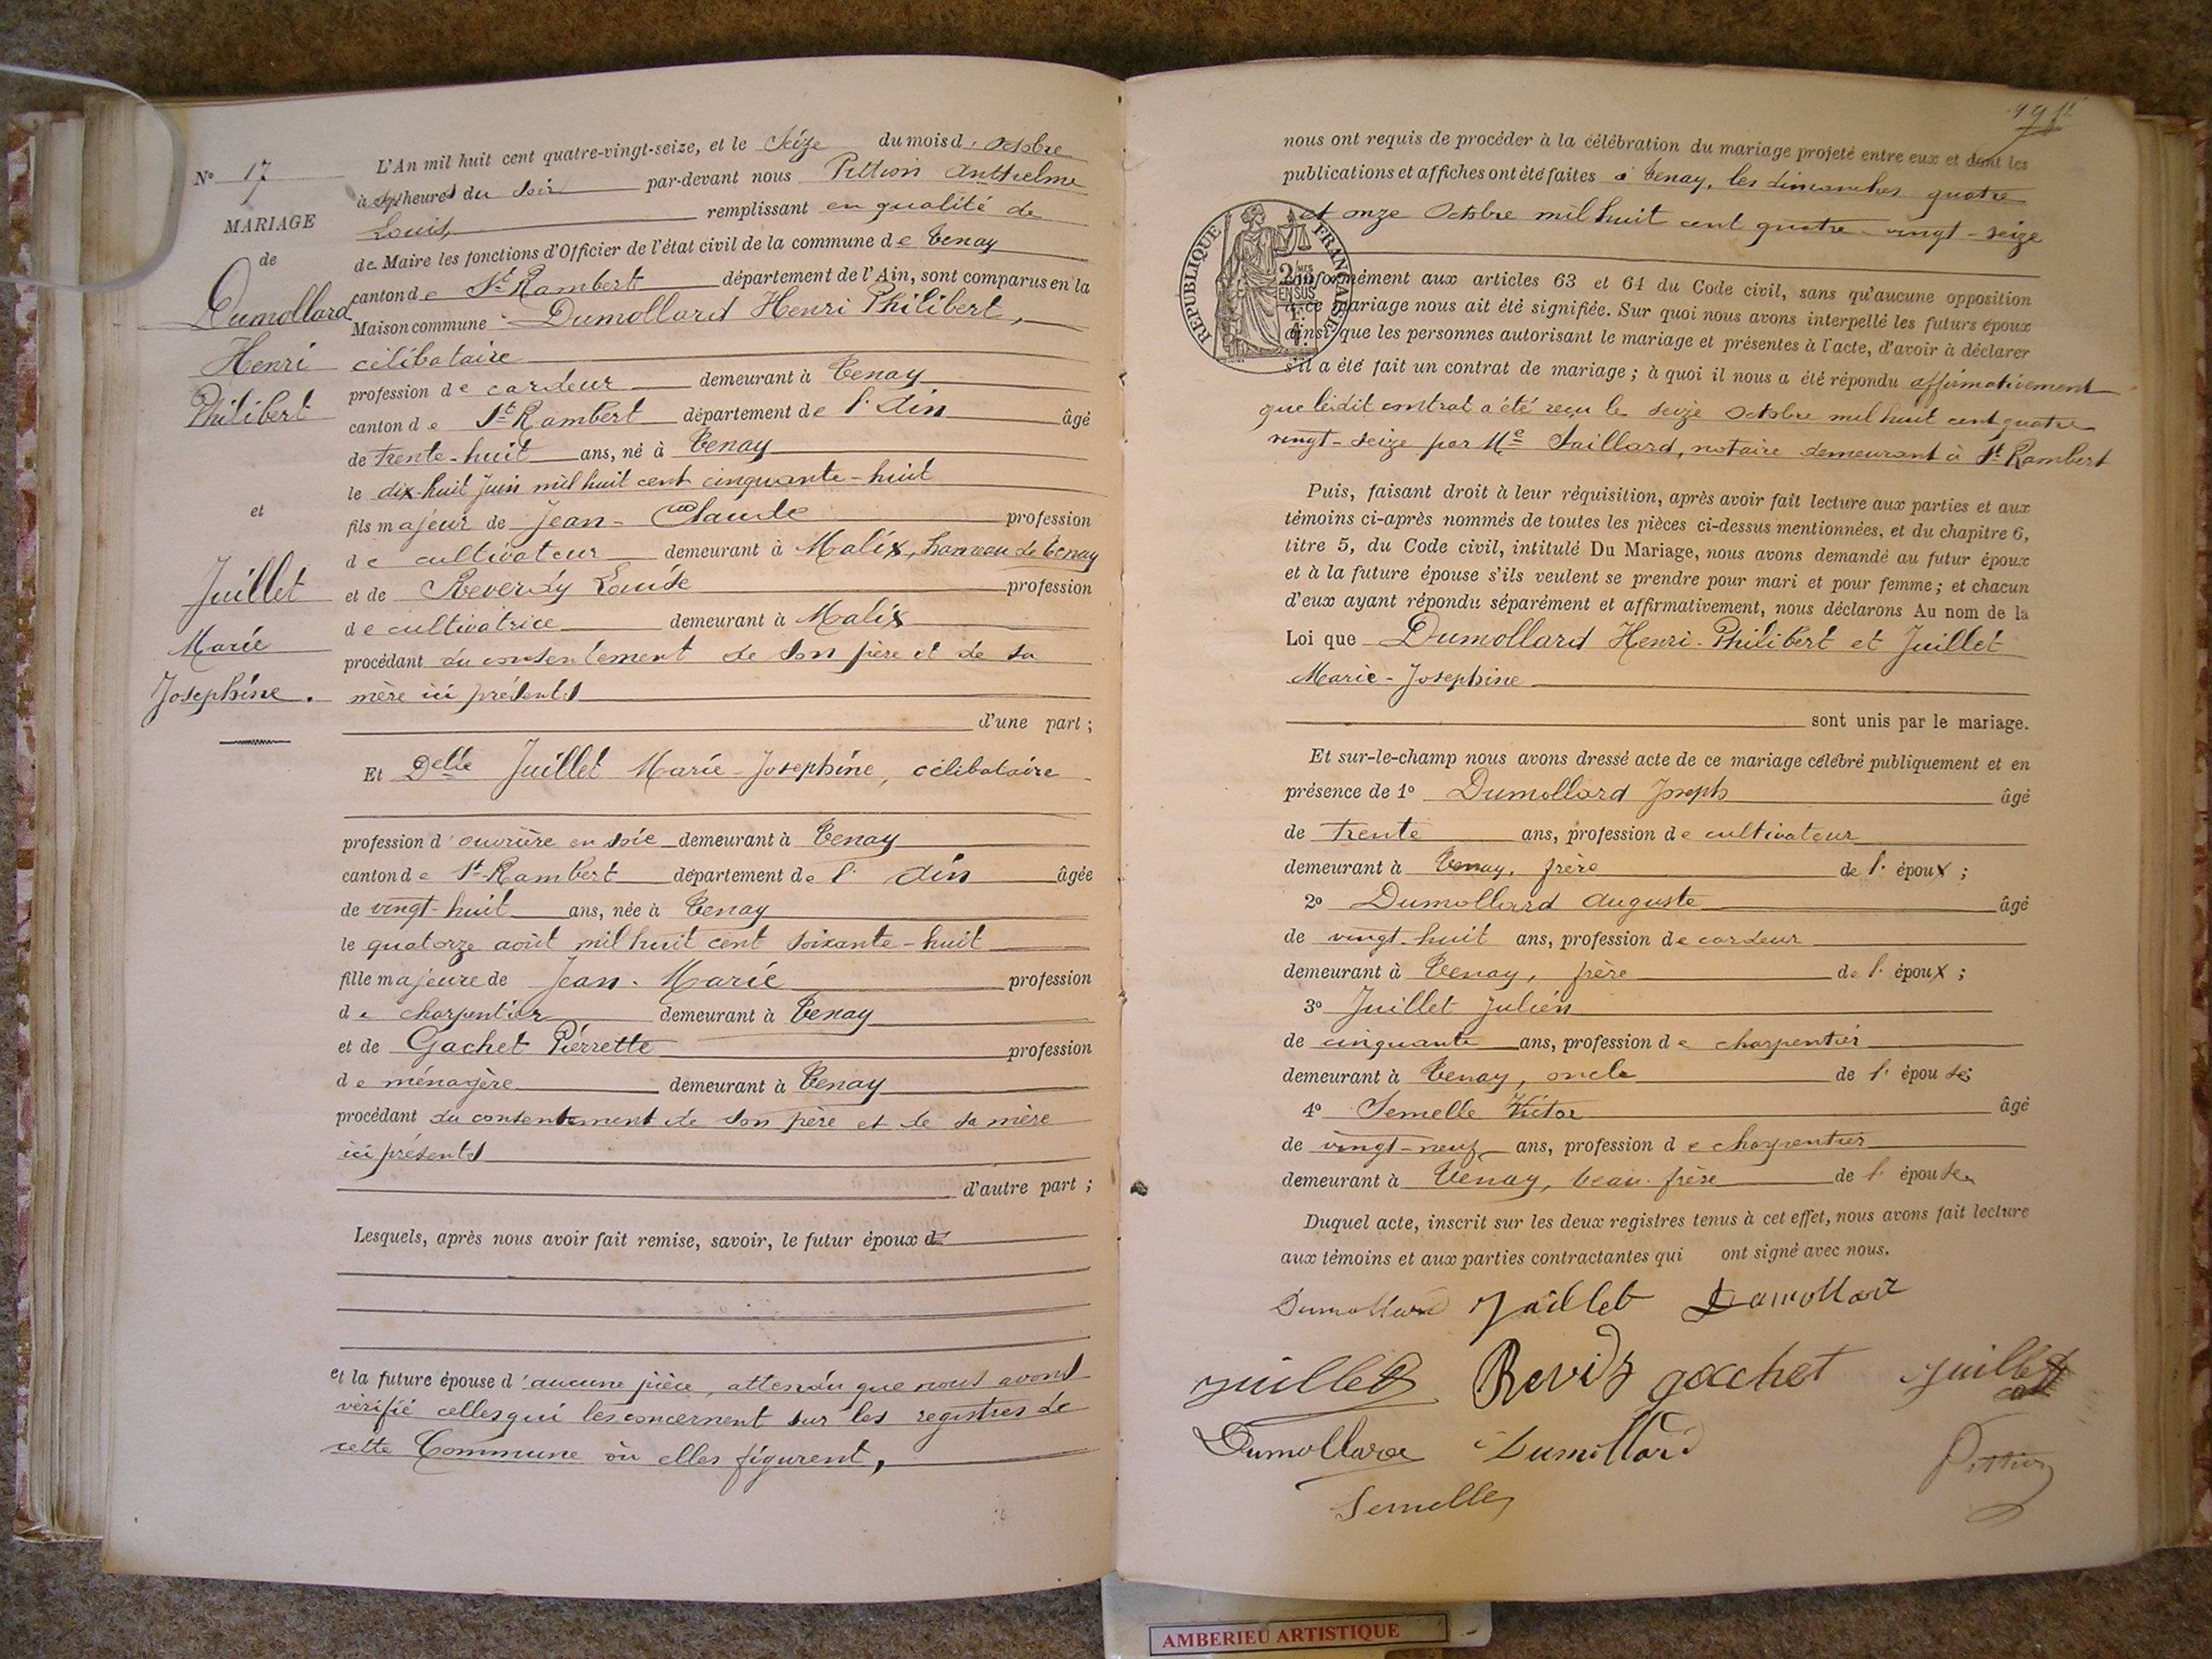 N° 17
MARIAGE
de
Dumollard
Henri
Philibert
et
Juillet
Marie
Josephine.
L'An mil huit cent quatre-vingt-seize, et le Seize du mois d'octobre
à sept heures du soir par-devant nous Pittion Anthelme
Louis, remplissant en qualité de
de Maire les fonctions d'Officier de l'état civil de la commune de Tenay
canton de St Rambert département de l'Ain, sont comparus en la
Maison commune Dumollard Henri Philibert,
célibataire
profession de cardeur demeurant à Tenay
canton de St Rambert département de l'Ain âgé
de trente-huit ans, né à Tenay
le dix-huit juin mil huit cent cinquante-huit
fils majeur de Jean-Claude profession
de cultivateur demeurant à Malix, hameau de Tenay
et de Reverdy Louise profession
de cultivatrice demeurant à Malix
procédant du consentement de son père et de sa
mère ici présents
d'une part ;
Et Delle Juillet Marie-Josephine, célibataire
profession d'ouvrière en soie demeurant à Tenay
canton de St-Rambert département de l'Ain âgée
de vingt-huit ans, née à Tenay
le quatorze août mil huit cent soixante-huit
fille majeure de Jean-Marie profession
de charpentier demeurant à Tenay
et de Gachet Pierrette profession
de ménagère demeurant à Tenay
procédant du consentement de son père et de sa mère
ici présents
d'autre part ;
Lesquels, après nous avoir fait remise, savoir, le futur époux d
et la future épouse d'aucune pièce, attendu que nous avons
vérifié celles qui les concernent sur les registres de
cette Commune où elles figurent,
nous ont requis de procéder à la célébration du mariage projeté entre eux et dont les
publications et affiches ont été faites à Tenay, les dimanches quatre
et onze Octobre mil huit cent quatre-vingt-seize
RÉPUBLIQUE FRANÇAISE
conformément aux articles 63 et 64 du Code civil, sans qu'aucune opposition
à ce mariage nous ait été signifiée. Sur quoi nous avons interpellé les futurs époux
ainsi que les personnes autorisant le mariage et présentes à l'acte, d'avoir à déclarer
s'il a été fait un contrat de mariage ; à quoi il nous a été répondu affirmativement
que ledit contrat a été reçu le seize octobre mil huit cent quatre
vingt-seize par Me Saillard, notaire demeurant à St Rambert
Puis, faisant droit à leur réquisition, après avoir fait lecture aux parties et aux
témoins ci-après nommés de toutes les pièces ci-dessus mentionnées, et du chapitre 6,
titre 5, du Code civil, intitulé Du Mariage, nous avons demandé au futur époux
et à la future épouse s'ils veulent se prendre pour mari et pour femme ; et chacun
d'eux ayant répondu séparément et affirmativement, nous déclarons Au nom de la
Loi que Dumollard Henri-Philibert et Juillet
Marie-Josephine
sont unis par le mariage.
Et sur-le-champ nous avons dressé acte de ce mariage célébré publiquement et en
présence de 1° Dumollard Joseph âgé
de trente ans, profession de cultivateur
demeurant à Tenay, frère de l'époux ;
2° Dumollard Auguste âgé
de vingt-huit ans, profession de cardeur
demeurant à Tenay, frère de l'époux ;
3° Juillet Julien
de cinquante ans, profession de charpentier
demeurant à Tenay, oncle de l'épouse;
4° Semelle Victor âgé
de vingt-neuf ans, profession de charpentier
demeurant à Tenay, beau-frère de l'épouse
Duquel acte, inscrit sur les deux registres tenus à cet effet, nous avons fait lecture
aux témoins et aux parties contractantes qui ont signé avec nous.
Dumollard Juillet Dumollard
Juillet gachet Juillet
Dumollard Dumollard Pittion
Semelle
AMBERIEU ARTISTIQUE